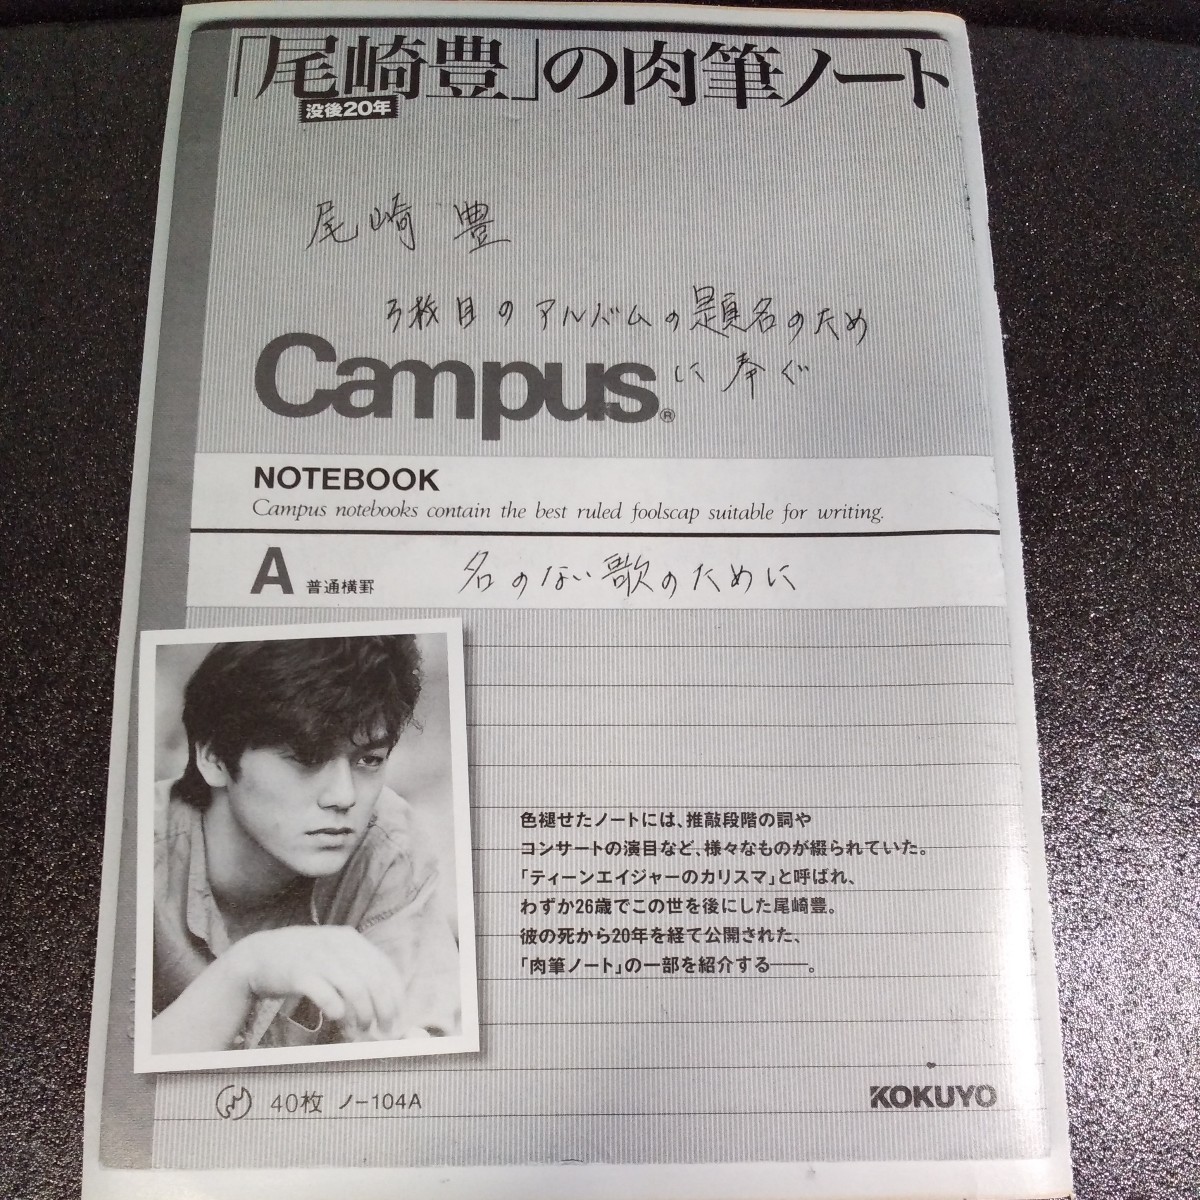 「尾崎豊」の肉筆ノート
没後20年
尾崎 豊
3枚目のアルバムの題名のため
に奉ぐ
Campus®
NOTEBOOK
Campus notebooks contain the best ruled foolscap suitable for writing.
A 普通横罫
名のない歌のために
色褪せたノートには、推敲段階の詞や
コンサートの演目など、様々なものが綴られていた。
「ティーンエイジャーのカリスマ」と呼ばれ、
わずか26歳でこの世を後にした尾崎豊。
彼の死から20年を経て公開された、
「肉筆ノート」の一部を紹介する――。
40枚 ノ-104A
KOKUYO